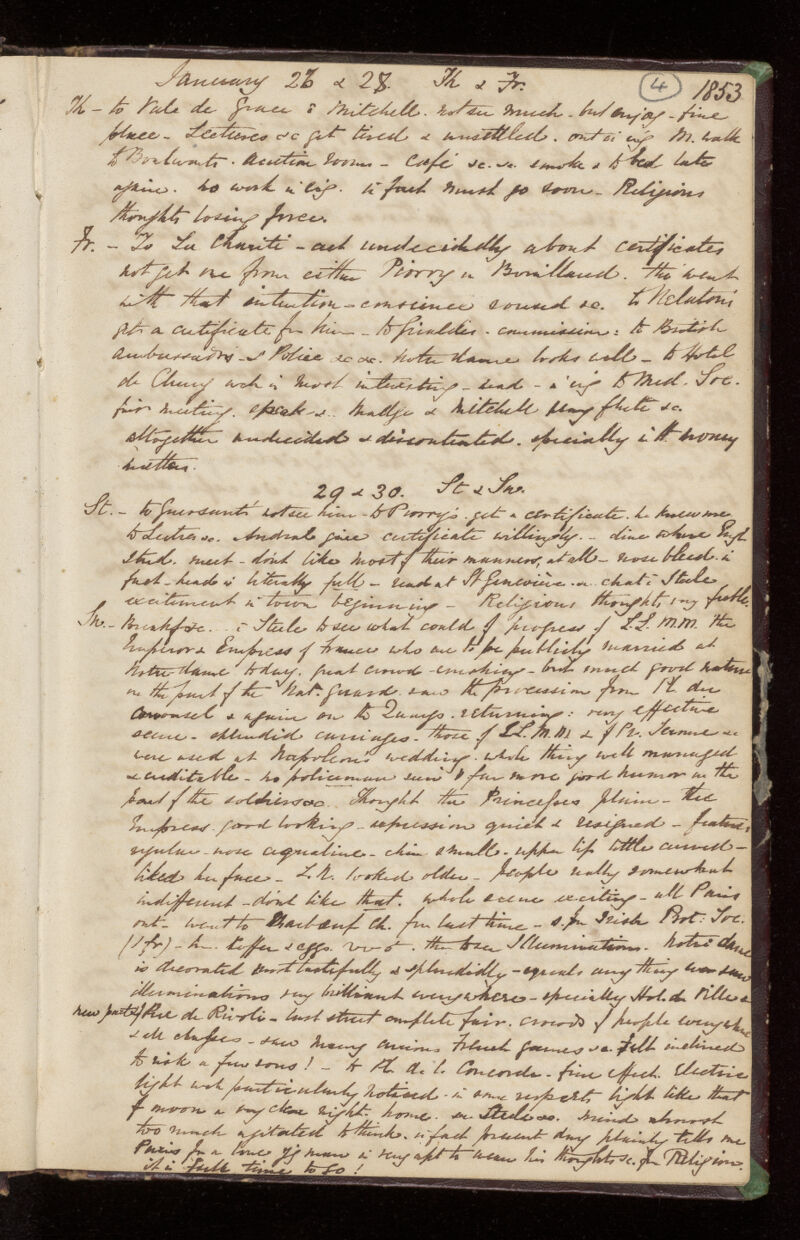 January 27 & 28. Th & Fr. 4 1853
Th - to Vale de Grace c̄ Mitchell. not see much - but enjoy - fine
place - Lectures &c get tired & unsettled. out in evg M. walk
to Boulevarts. auction rooms - café &c. &c. smoke & to bed late
again. no work in evg. in fact must go soon - Religious
thoughts losing force.
Fr. - To La Chariti - act undecidedly about certificates
not get one from either Piorry or Bouillaud. tho' went
with that intention - conscience sound &c. to Nelaton's
get a certificate from him - to commission: to British
ambassadors - & Police &c &c. Notre dame looks well - to Hotel
de Cluny wch is most interesting - read - in evg to Med. Soc.
fair meeting. speak &. Madge & Mitchell flute &c.
altogether undecided & discontented. specially in money
matters.
29 & 30. St & Su.
St. - to Guersant's not see him - to Piorry's. get a certificate. he knew me
to &c. Andral give certificate willingly. - dine where Engl
stud. meet - don't like most of their manners, at all - nose bleed. in
fact - head is literally full - read at St Genevieve. chat c̄ Steele
excitement in town beginning - Religious thoughts very feeble.
Su. - Breakf &c. c̄ Steele to see what could of progress of L.L. M.M. the
Emperor & Empress of France who are to be publicly married at
Notre dame today. great crowd - smoking - but much good nature
on the part of the Nat. guard. saw the procession from Pl. du
Carousel & again on the Quays. returning: very effective
scene - splendid carriages - those of L.L. M.M. & of Pr. Jerome &c
were used at Napoleon's wedding. whole thing well managed
& creditable - no policeman seen & far more good humor on the
part of the soldiers &c. Thought the Princesses plain - the
Empress. good looking - expression quiet & resigned - features
regular - nose aquiline - chin small - upper lip little curved -
liked her face - L.N. looked older. People really somewhat
indifferent - don't like that. whole scene exciting - all Paris
out - went to Ch. for last time - s. for Irish Prot: Soc.
(1 fr) - & eggs. the to see Illuminations. Notre dame
is decorated most tastefully & splendidly - equals any thing ever saw
illuminations very brilliant everywhere - specially Hot. de Ville &
new part of Rue de Rivoli - last street complete fair. crowds of people everywhere
& all classes - saw many curious French games &c. felt inclined
to risk a few sous! - to Pl. de la Concorde - fine effect. Electric
light wch particularly noticed. in some respects light like that
of moon a very clear night. home. Steele &c. mind almost
too much agitated to think. in fact present day plainly tells me
Paris for a lone yg man is very apt to wean his thoughts &c. fr Religion.
it is full time to Go!